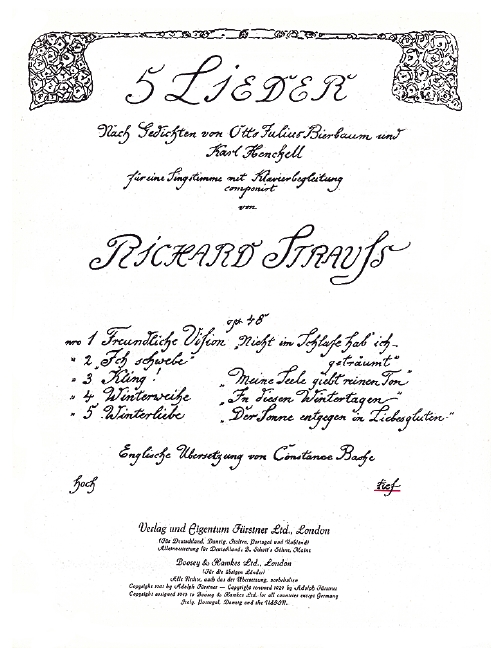 5 LIEDER
Nach Gedichten von Otto Julius Bierbaum und
Karl Henckell
für eine Singstimme mit Klavierbegleitung
componirt
von
RICHARD STRAUSS
op. 48
nro 1 Freundliche Vision „Nicht im Schlafe hab' ich
geträumt"
" 2 „Ich schwebe"
" 3 Kling! „Meine Seele giebt reinen Ton"
" 4 Winterweihe „In diesen Wintertagen"
" 5 Winterliebe „Der Sonne entgegen in Liebesgluten"
Englische Übersetzung von Constance Bache
hoch tief
Verlag und Eigentum Fürstner Ltd., London
(Für Deutschland, Danzig, Italien, Portugal und Rußland)
Alleinvertretung für Deutschland: B. Schott's Söhne, Mainz
Boosey & Hawkes Ltd., London
(Für die übrigen Länder)
Alle Rechte, auch das der Übersetzung, vorbehalten
Copyright 1901 by Adolph Fürstner — Copyright renewed 1929 by Adolph Fürstner
Copyright assigned 1943 to Boosey & Hawkes Ltd. for all countries except Germany
Italy, Portugal, Danzig and the USSR.